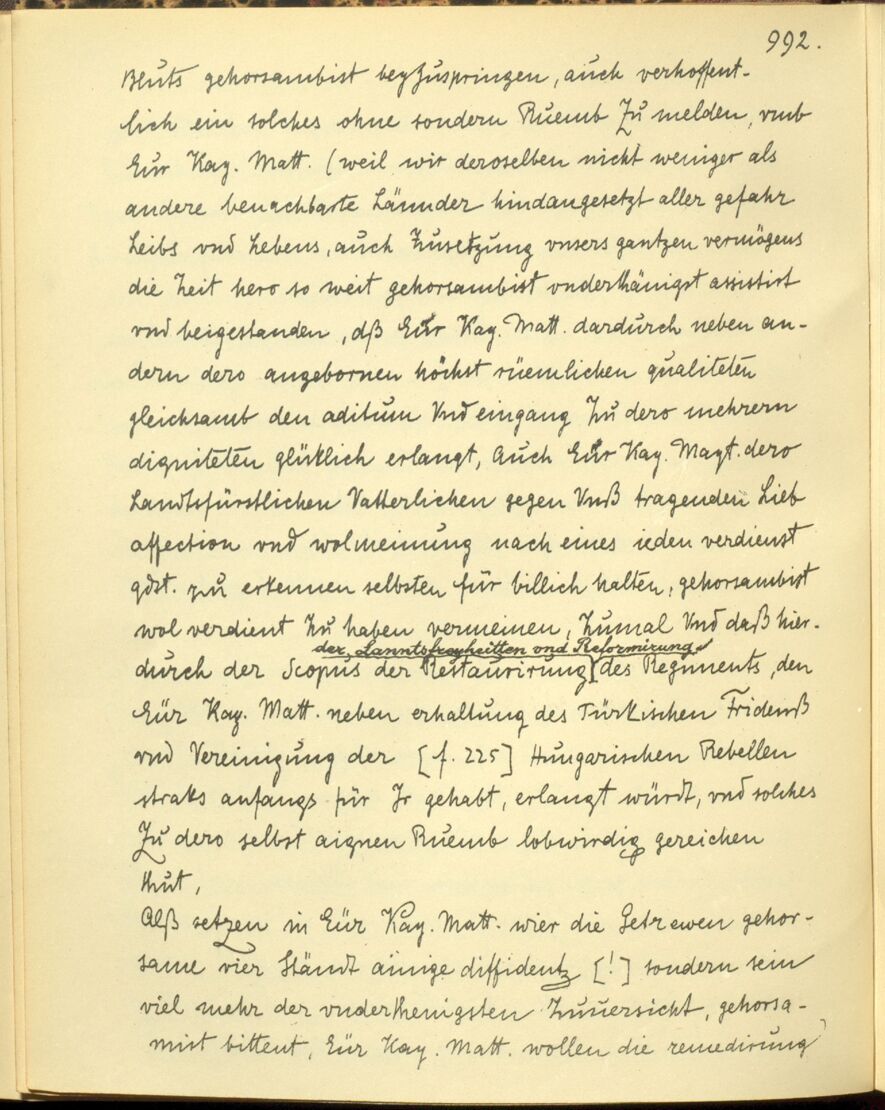 992.
Bluts gehorsambist beyzuspringen, auch verhoffent-
lich ein solches ohne sondern Ruemb Zu melden, vmb
Eur Kay. Matt. (weil wir deroselben nicht weniger als
andere benachbarte Länder hindangesetzt aller gefahr
Leibs vnd Lebens, auch Zusetzung vnsers gantzen vermögens
die Zeit hero so weit gehorsambist vnderthänigst assistirt
vnd beigestanden, dß Eür Kay. Matt. dardurch neben an-
dern dero angebornen höchst rüemlichen qualiteten
gleichsamb den aditum Vnd eingang Zu dero mehrern
digniteten glüklich erlangt, auch Eür Kay. Mayt. dero
Landtsfürstlichen Vatterlichen gegen Vnß tragenden Lieb
affection vnd wolmeinung nach eines ieden verdienst
gdst. zu erkennen selbsten für billich halten, gehorsambist
wol verdient Zu haben vermeinen, Zumal Vnd daß hier-
der Lanndtsfreyheitten vnd Reformirung
durch der Scopus der Restaurirung des Regiments, den
Eür Kay. Matt. neben erhaltung des Türkischen Fridenß
vnd Vereinigung der [f. 225] Hungarischen Rebellen
straks anfangs für Ir gehabt, erlangt würdt, vnd solches
Zu dero selbst aignen Ruemb lobwirdig gereichen
thut,
Alß setzen in Eür Kay. Matt. wier die Getrewen gehor-
same vier Ständt ainige diffidentz [!] sondern sein
viel mehr der vnderthenigsten Zuuersicht, gehorsa-
mist bittent, Eür Kay. Matt. wollen die remedirung